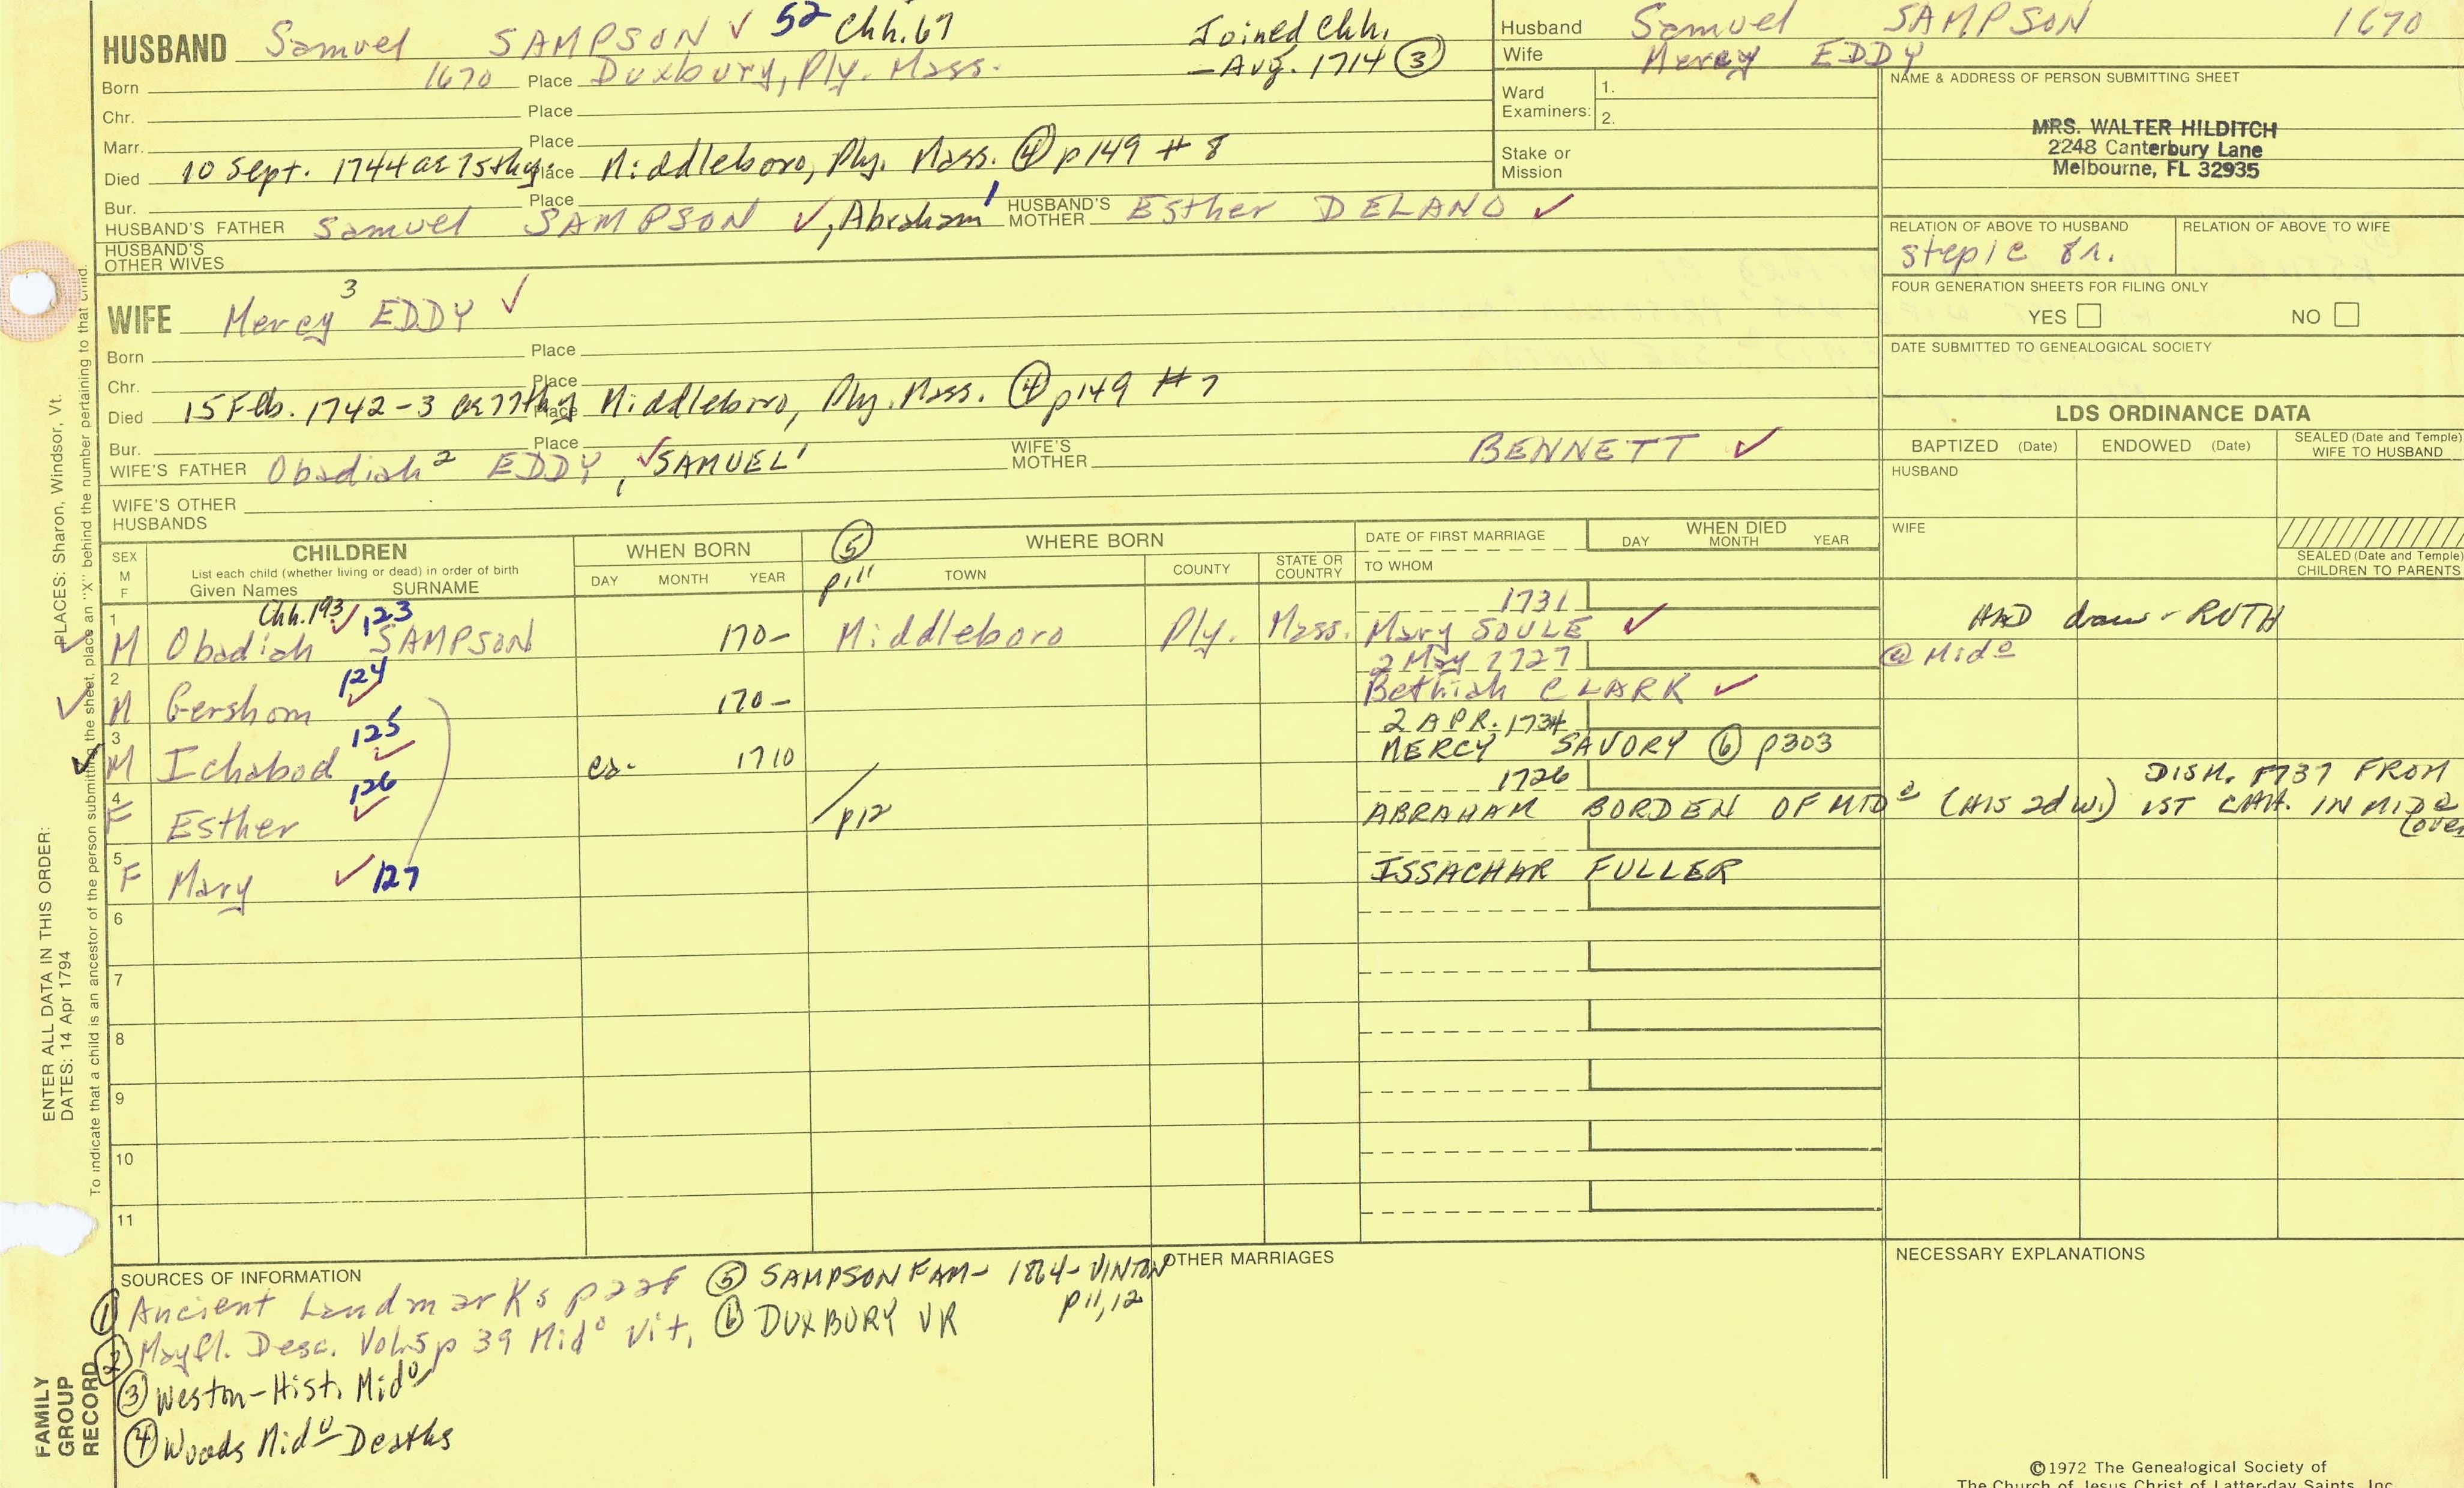 HUSBAND Samuel SAMPSON ✓ 52 Chh. 67 Joined Chh.
Born 1670 Place Duxbury, Ply. Mass. - Aug. 1714 ③
Chr. Place
Marr. Place
Died 10 Sept. 1744 ae 75thy Place Middleboro, Ply. Mass. ④ p149 # 8
Bur. Place
HUSBAND'S FATHER Samuel SAMPSON ✓, Abraham' HUSBAND'S MOTHER Esther DELANO ✓
HUSBAND'S
OTHER WIVES
Husband Samuel SAMPSON 1670
Wife Mercy EDDY
Ward
Examiners: 1.
2.
Stake or
Mission
NAME & ADDRESS OF PERSON SUBMITTING SHEET
MRS. WALTER HILDITCH
2248 Canterbury Lane
Melbourne, FL 32935
RELATION OF ABOVE TO HUSBAND RELATION OF ABOVE TO WIFE
FOUR GENERATION SHEETS FOR FILING ONLY
YES NO
DATE SUBMITTED TO GENEALOGICAL SOCIETY
WIFE Mercy 3 EDDY ✓
Born Place
Chr. Place
Died 15 Feb. 1742-3 ae 77thy Place Middleboro, Ply. Mass. ④ p149 # 7
Bur. Place
WIFE'S FATHER Obadiah 2 EDDY, ✓ SAMUEL' WIFE'S MOTHER BENNETT ✓
WIFE'S OTHER
HUSBANDS
LDS ORDINANCE DATA
BAPTIZED (Date) ENDOWED (Date) SEALED (Date and Temple)
WIFE TO HUSBAND
HUSBAND
WIFE
SEALED (Date and Temple)
CHILDREN TO PARENTS
SEX
M
F
CHILDREN
List each child (whether living or dead) in order of birth
Given Names SURNAME
WHEN BORN
DAY MONTH YEAR
⑤
p11
WHERE BORN
TOWN COUNTY STATE OR
COUNTRY
DATE OF FIRST MARRIAGE
TO WHOM
WHEN DIED
DAY MONTH YEAR
Chh. 193 ✓ 123 1731
1 ✓ M Obadiah SAMPSON 170- Middleboro Ply. Mass. Mary SOULE ✓ HAD RUTH
124 2 May 1727 @ Mid o
2 ✓ M Gershom ✓ 170- Bethiah CLARK ✓
125 2 APR. 1734
3 ✓ M Ichabod ✓ ca. 1710 MERCY SAVORY ⑥ p303
126 1726 DISM. 1737 FROM
4 F Esther ✓ p12 ABRAHAM BORDEN OF MID o (HIS 2d W.) 1ST CHH. IN MID o
(over
5 F Mary ✓ 127 ISSACHAR FULLER
6
7
8
9
10
11
SOURCES OF INFORMATION
① Ancient Landmarks
② Mayfl. Desc. Vol.5 p 39 Mid o Vit.
③ Weston-Hist. Mid o
④ Woods Mid o Deaths
⑤ SAMPSON FAM- 1864- VINTON
p11,12
⑥ DUXBURY VR
OTHER MARRIAGES
NECESSARY EXPLANATIONS
ENTER ALL DATA IN THIS ORDER:
DATES: 14 Apr 1794
PLACES: Sharon, Windsor, Vt.
To indicate that a child is an ancestor of the person submitting the sheet, place an "X" behind the number pertaining to that child.
FAMILY
GROUP
RECORD
©1972 The Genealogical Society of
The Church of Jesus Christ of Latter-day Saints, Inc.